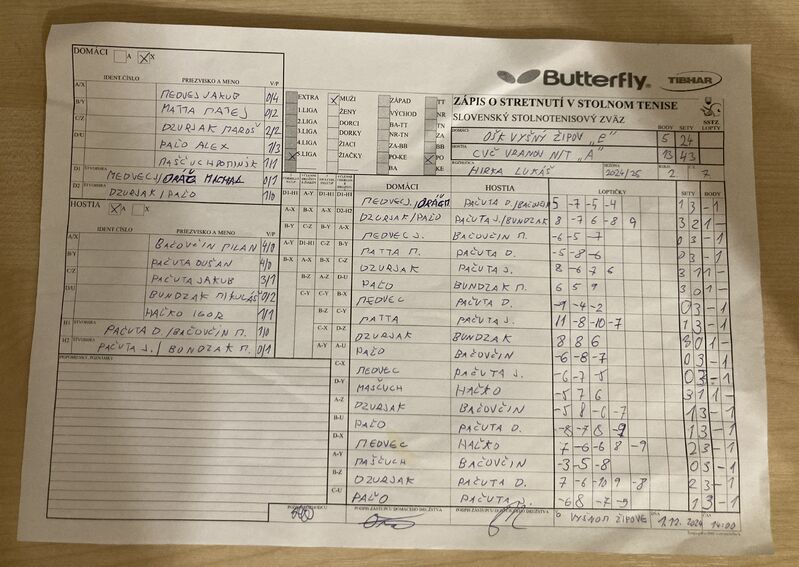 DOMÁCI A X
IDENT ČÍSLO PRIEZVISKO A MENO V/P
A/X MEDVEJ JAKUB 0/4
B/Y MATTA MATEJ 0/2
C/Z DZURJAK MAROŠ 2/2
D/U PAČO ALEX 1/3
MAŠČUCH DOMINIK 1/1
D1 ŠTVORHRA MEDVEC J/DRÁĎ MICHAL 0/1
D2 ŠTVORHRA DZURJAK/PAČO 1/0
HOSTIA A X
IDENT ČÍSLO PRIEZVISKO A MENO V/P
A/X BAČOVČIN MILAN 4/0
B/Y PAČUTA DUŠAN 4/0
C/Z PAČUTA JAKUB 3/1
D/U BUNDZAK MIKULÁŠ 0/2
HAĽKO IGOR 1/1
H1 ŠTVORHRA PAČUTA D. /BAČOVČIN M. 1/0
H2 ŠTVORHRA PAČUTA J. / BUNDZAK M. 0/1
PRIPOMIENKY, POZNÁMKY
EXTRA MUŽI ZÁPAD TT
1.LIGA ŽENY VÝCHOD NR
2.LIGA DORCI BA-TT TN
3.LIGA DORKY NR-TN ZA
4.LIGA ŽIACI ZA-BB BB
5.LIGA ŽIAČKY PO-KE PO
BA KE
Butterfly TIBHAR
ZÁPIS O STRETNUTÍ V STOLNOM TENISE
SLOVENSKÝ STOLNOTENISOVÝ ZVÄZ
SSTZ
BODY SETY LOPTY
DOMÁCI OŠK VYŠNÝ ŽIPOV „C“ 5 24
HOSTIA CVČ VRANOV N/T „A“ 13 43
ROZHODCA HIRKA LUKÁŠ SEZÓNA 2024/25 2 7
DOMÁCI HOSTIA LOPTIČKY SETY BODY
D1-H1 A-Y D1-H1 D1-H1 MEDVEC J./DRÁĎ PAČUTA D./BAČOVČIN 5 -7 -5 -4 1 3 - 1
A-X B-X A-X D2-H2 DZURJAK/PAČO PAČUTA J./BUNDZAK 8 -7 6 -8 9 3 2 1 -
B-Y C-Z B-Y A-X MEDVEC J. BAČOVČIN M. -6 -5 -7 0 3 - 1
A-Y D1-H1 C-Z B-Y MATTA M. PAČUTA D. -5 -8 -6 0 3 - 1
B-X A-X C-Z DZURJAK PAČUTA J. 8 -6 7 6 3 1 1 -
B-Z A-Z D-U PAČO BUNDZAK M. 6 5 9 3 0 1 -
C-Y C-Y B-X MEDVEC PAČUTA D. -9 -4 -2 0 3 - 1
B-Z C-Y MATTA PAČUTA J. 11 -8 -10 -7 1 3 - 1
C-X D-Z DZURJAK BUNDZAK 8 8 6 3 0 1 -
A-Y A-U PAČO BAČOVČIN -6 -8 -7 0 3 - 1
C-X MEDVEC PAČUTA J. -6 -7 -5 0 3 - 1
D-Y MAŠČUCH HAĽKO -5 7 6 3 1 1 -
A-Z DZURJAK BAČOVČIN -5 8 -6 -7 1 3 - 1
B-U PAČO PAČUTA D. -8 -7 8 -9 1 3 - 1
D-X MEDVEC HAĽKO 7 -6 -6 8 -9 2 3 - 1
A-Y MAŠČUCH BAČOVČIN -3 -5 -8 0 3 - 1
B-Z DZURJAK PAČUTA D. 7 -6 -10 9 -8 2 3 - 1
C-U PAČO PAČUTA J. -6 8 -7 -9 1 3 - 1
PODPIS ROZHODCU PODPIS ZÁSTUPCU DOMÁCEHO DRUŽSTVA PODPIS ZÁSTUPCU HOSŤUJÚCEHO DRUŽSTVA VYŠNOM ŽIPOVE DŇA 1.12.2024 ČAS 14:00